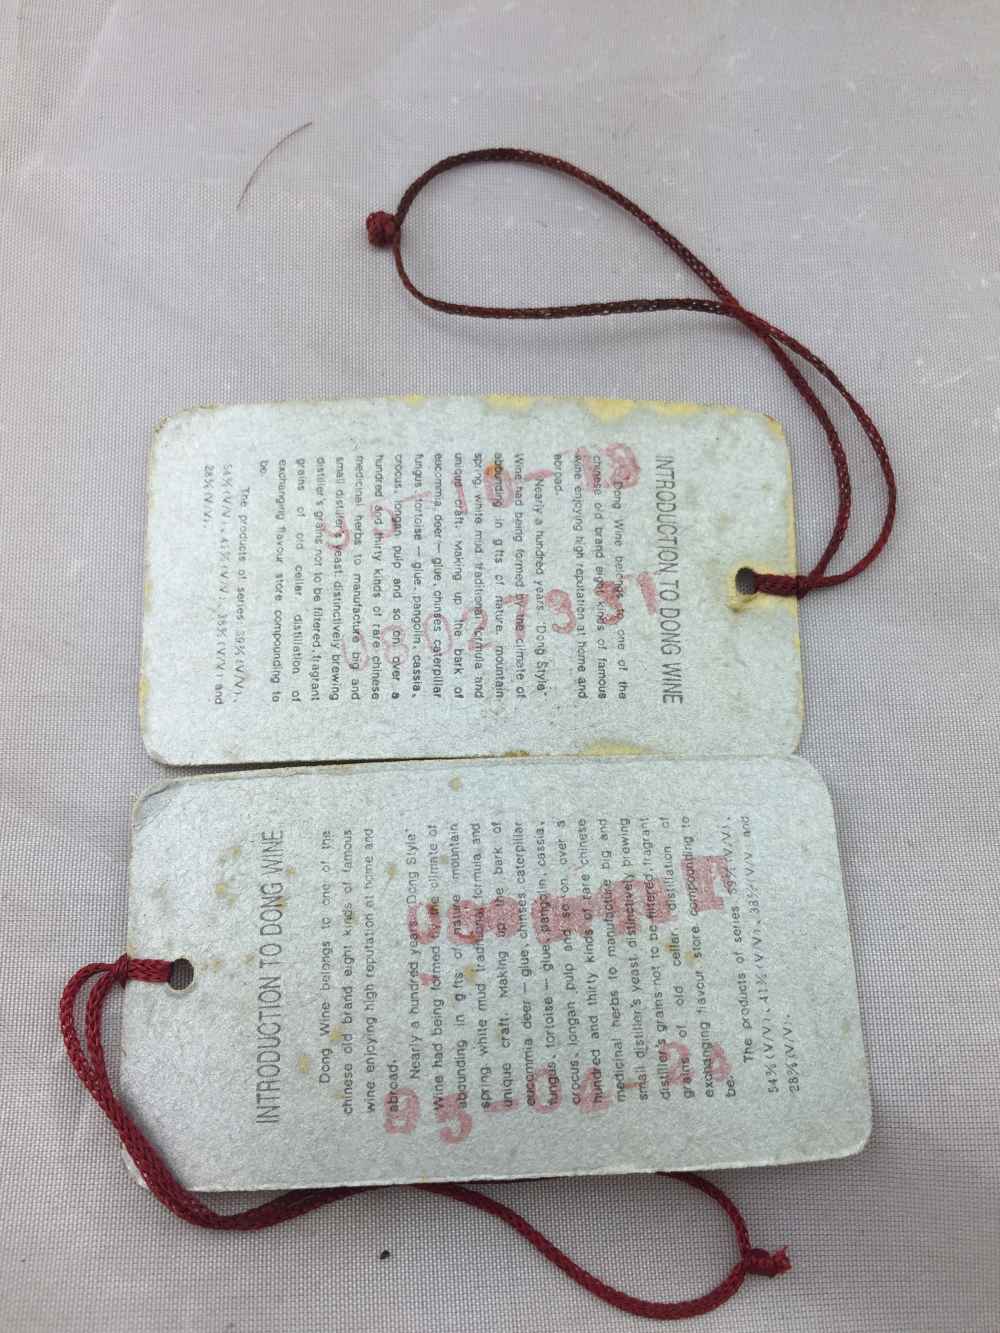 INTRODUCTION TO DONG WINE
Dong Wine belongs to one of the
chinese old brand eight kinds of famous
wine enjoying high reputation at home and
abroad.
Nearly a hundred years. "Dong Style"
Wine had being formed by the climate of
abounding in gifts of nature, mountain-
spring, white mud, traditional formula and
unique craft. Making up the bark of
eucommia, deer — glue, chinses caterpillar
fungus, tortoise — glue, pangolin, cassia,
crocus, longan pulp and so on, over a
hundred and thirty kinds of rare chinese
medicinal herbs to manufacture big and
small distiller's yeast, distinctively brewing
distiller's grains not to be filtered, fragrant
grains of old cellar distillation of
exchanging flavour store compounding to
be.
The products of series 59% (V/V),
54% (V/V), 41% (V/V), 38% (V/V) and
28% (V/V),
INTRODUCTION TO DONG WINE
Dong Wine belongs to one of the
chinese old brand eight kinds of famous
wine enjoying high reputation at home and
abroad.
Nearly a hundred years. "Dong Style"
Wine had being formed by the climate of
abounding in gifts of nature mountain
spring, white mud traditional formula, and
unique craft. Making up the bark of
eucommia deer — glue, chinses caterpillar
fungus, tortoise — glue, pangolin, cassia,
crocus, longan pulp and so on, over a
hundred and thirty kinds of rare chinese
medicinal herbs to manufacture big and
small distiller's yeast distinctively brewing
distiller's grains not to be filtered, fragrant
grains of old cellar distillation of
exchanging flavour store compounding to
be.
The products of series 59% (V/V),
54% (V/V), 41% (V/V), 38% (V/V) and
28% (V/V).